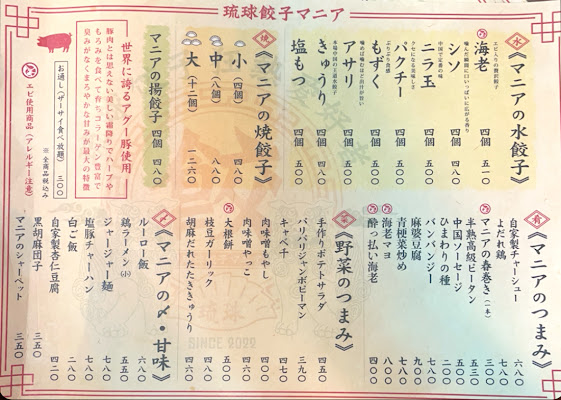 琉球餃子マニア
水
《マニアの水餃子》
エビ入りの贅沢餃子
海老 四個 五一〇
噛んだ瞬間に口いっぱいに広がる香り
シソ 四個 四八〇
中国で定番の味
ニラ玉 四個 五〇〇
クセになる美味しさ
パクチー 四個 五〇〇
ぷりぷり食感
もずく 四個 五〇〇
噛めば噛むほど貝汁が旨い
アサリ 四個 五〇〇
本場中国の王道水餃子
きゅうり 四個 五〇〇
塩もつ 四個 五〇〇
焼
《マニアの焼餃子》
小 (四個) 四八〇
中 (八個) 八八〇
大 (十二個) 一二六〇
マニアの揚餃子 四個 四八〇
世界に誇るアグー豚使用
豚肉とは思えない美しい霜降りでハーブや
もろみを食べて育ちコラーゲン豊富で
臭みがなくまろやかな甘みが最大の特徴
お通し(ザーサイ食べ放題) 三〇〇
※全商品税込み
エビ使用商品(アレルギー注意)
肴
《マニアのつまみ》
自家製チャーシュー 六八〇
よだれ鶏 七八〇
マニアの春巻き(二本) 三〇〇
半熟高級ピータン 五三〇
中国ソーセージ 五五〇
ひまわりの種 二〇〇
バンバンジー 五八〇
麻婆豆腐 九〇〇
青梗菜炒め 七〇〇
海老マヨ 八八〇
酔っ払い海老 四八〇
菜
《野菜のつまみ》
手作りポテトサラダ 四五〇
パリパリジャンボピーマン 三九〇
キャベ千 四七〇
肉味噌もやし 四八〇
肉味噌やっこ 四六〇
大根餅 五〇〇
枝豆ガーリック 四八〇
胡麻だれたたききゅうり 四六〇
〆
《マニアの〆・甘味》
ルーロー飯 六八〇
鶏ラーメン(小) 五五〇
ジャージャー麺 七八〇
塩豚チャーハン 七八〇
白ご飯 二〇〇
自家製杏仁豆腐 四二〇
黒胡麻団子 三五〇
マニアのシャーベット 三五〇
琉球
SINCE 2022